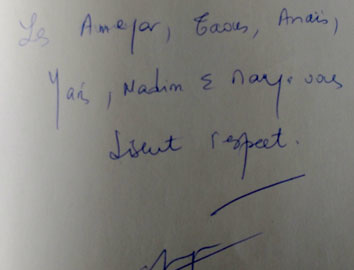 Les Ameyar, Taous, Anaïs,
Yanis, Nadim & Mary vous
disent respect.